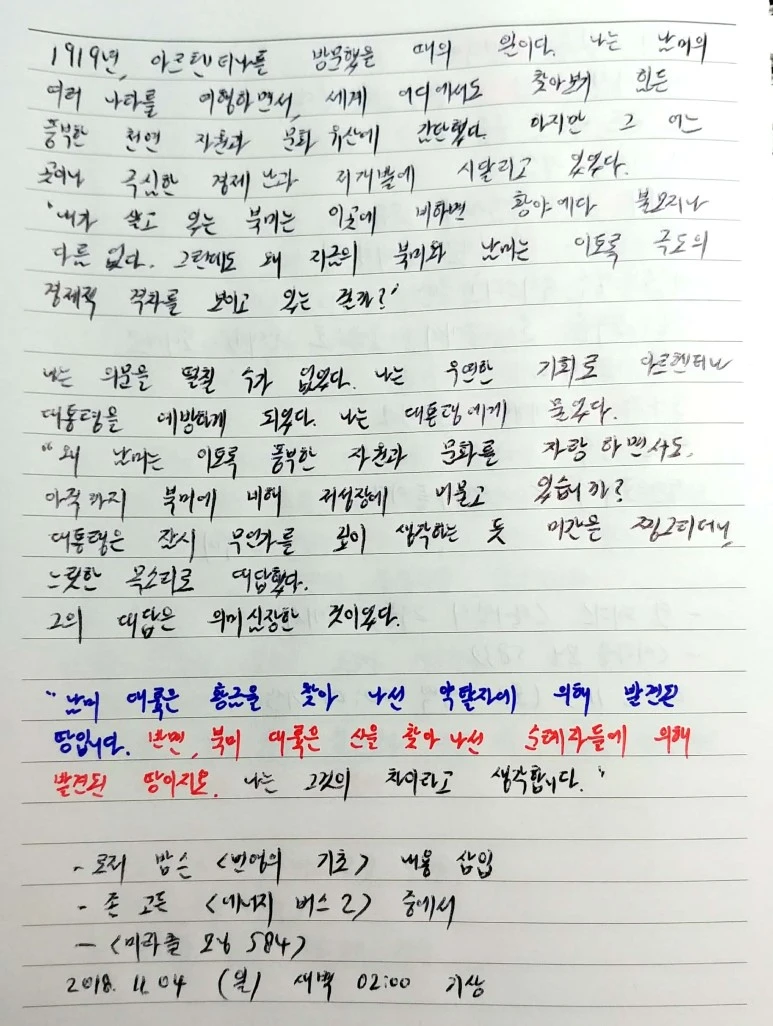 1919년, 아르헨티나를 방문했을 때의 일이다. 나는 남미의
여러 나라를 여행하면서, 세계 어디에서도 찾아보기 힘든
풍부한 천연 자원과 문화 유산에 감탄했다. 하지만 그 어느
곳이나 극심한 경제난과 저개발에 시달리고 있었다.
"내가 살고 있는 북미는 이곳에 비하면 황야에다 불모지나
다름 없다. 그런데도 왜 지금의 북미와 남미는 이토록 극도의
경제적 격차를 보이고 있는 걸까?"
나는 의문을 떨칠 수가 없었다. 나는 우연한 기회로 아르헨티나
대통령을 예방하게 되었다. 나는 대통령에게 물었다.
"왜 남미는 이토록 풍부한 자원과 문화를 자랑하면서도,
아직까지 북미에 비해 저성장에 머물고 있습니까?
대통령은 잠시 무언가를 깊이 생각하는 듯 미간을 찡그리더니,
느릿한 목소리로 대답했다.
그의 대답은 의미심장한 것이었다.
"남미 대륙은 황금을 찾아 나선 약탈자에 의해 발견된
땅입니다. 반면, 북미 대륙은 신을 찾아 나선 순례자들에 의해
발견된 땅이지요. 나는 그것의 차이라고 생각합니다."
- 로저 밥슨 <번영의 기초> 내용 삽입
- 존 고든 <에너지 버스 2> 중에서
- <미라클 모닝 584>
2018. 11. 04 (일) 새벽 02:00 기상